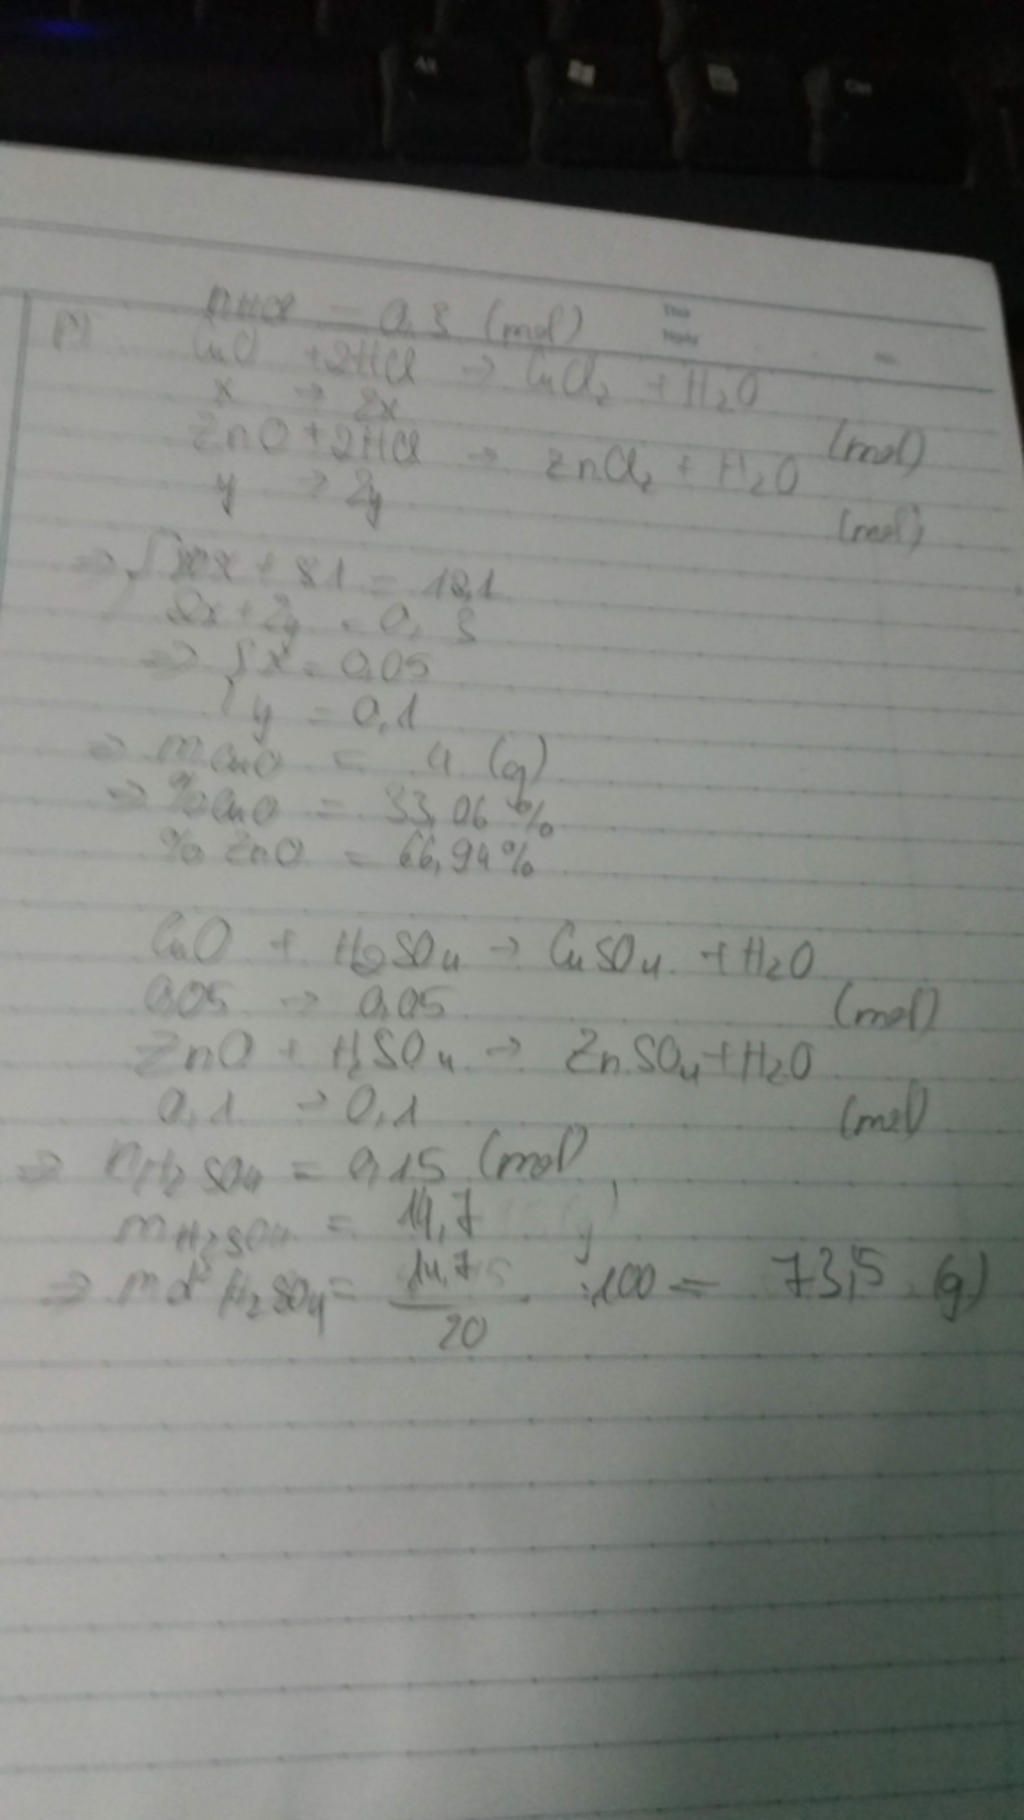 Alt
Ctrl
Thứ
Ngày
nHCl = 0,3 (mol)
CuO + 2HCl → CuCl₂ + H₂O
x → 2x (mol)
ZnO + 2HCl → ZnCl₂ + H₂O
y → 2y (mol)
⇒ { 80x + 81 = 12,1
2x + 2y = 0,3
⇒ { x = 0,05
y = 0,1
⇒ mCuO = 4 (g)
⇒ % CuO = 33,06 %
% ZnO = 66,94 %
CuO + H₂SO₄ → CuSO₄ + H₂O
0,05 → 0,05 (mol)
ZnO + H₂SO₄ → ZnSO₄ + H₂O
0,1 → 0,1 (mol)
⇒ nH₂SO₄ = 0,15 (mol)
mH₂SO₄ = 14,7
⇒ md² H₂SO₄ = 14,7 / 20 .100 = 73,5 (g)